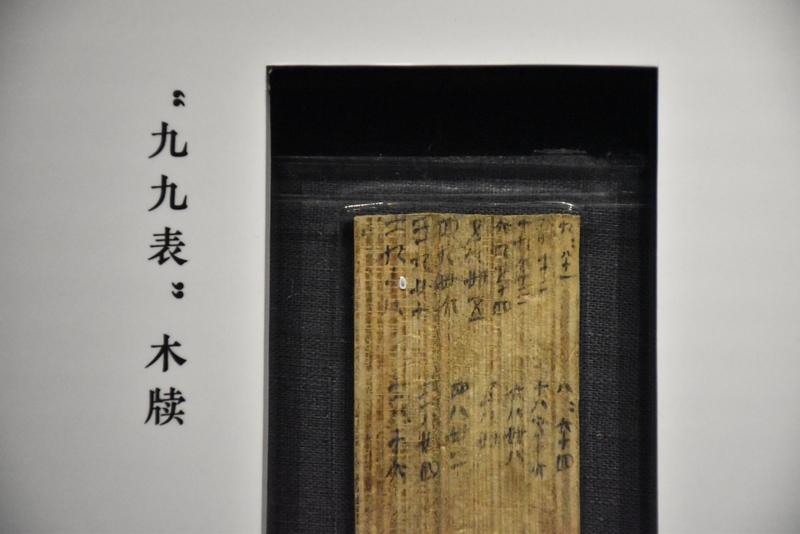 “九九表”木牍
九〻八十一
六九五十四
五九卌五
四九卅六
三九廿七
二九十八
八〻六十四
七八五十六
六八卌八
四八卅二
三八廿四
二八十六